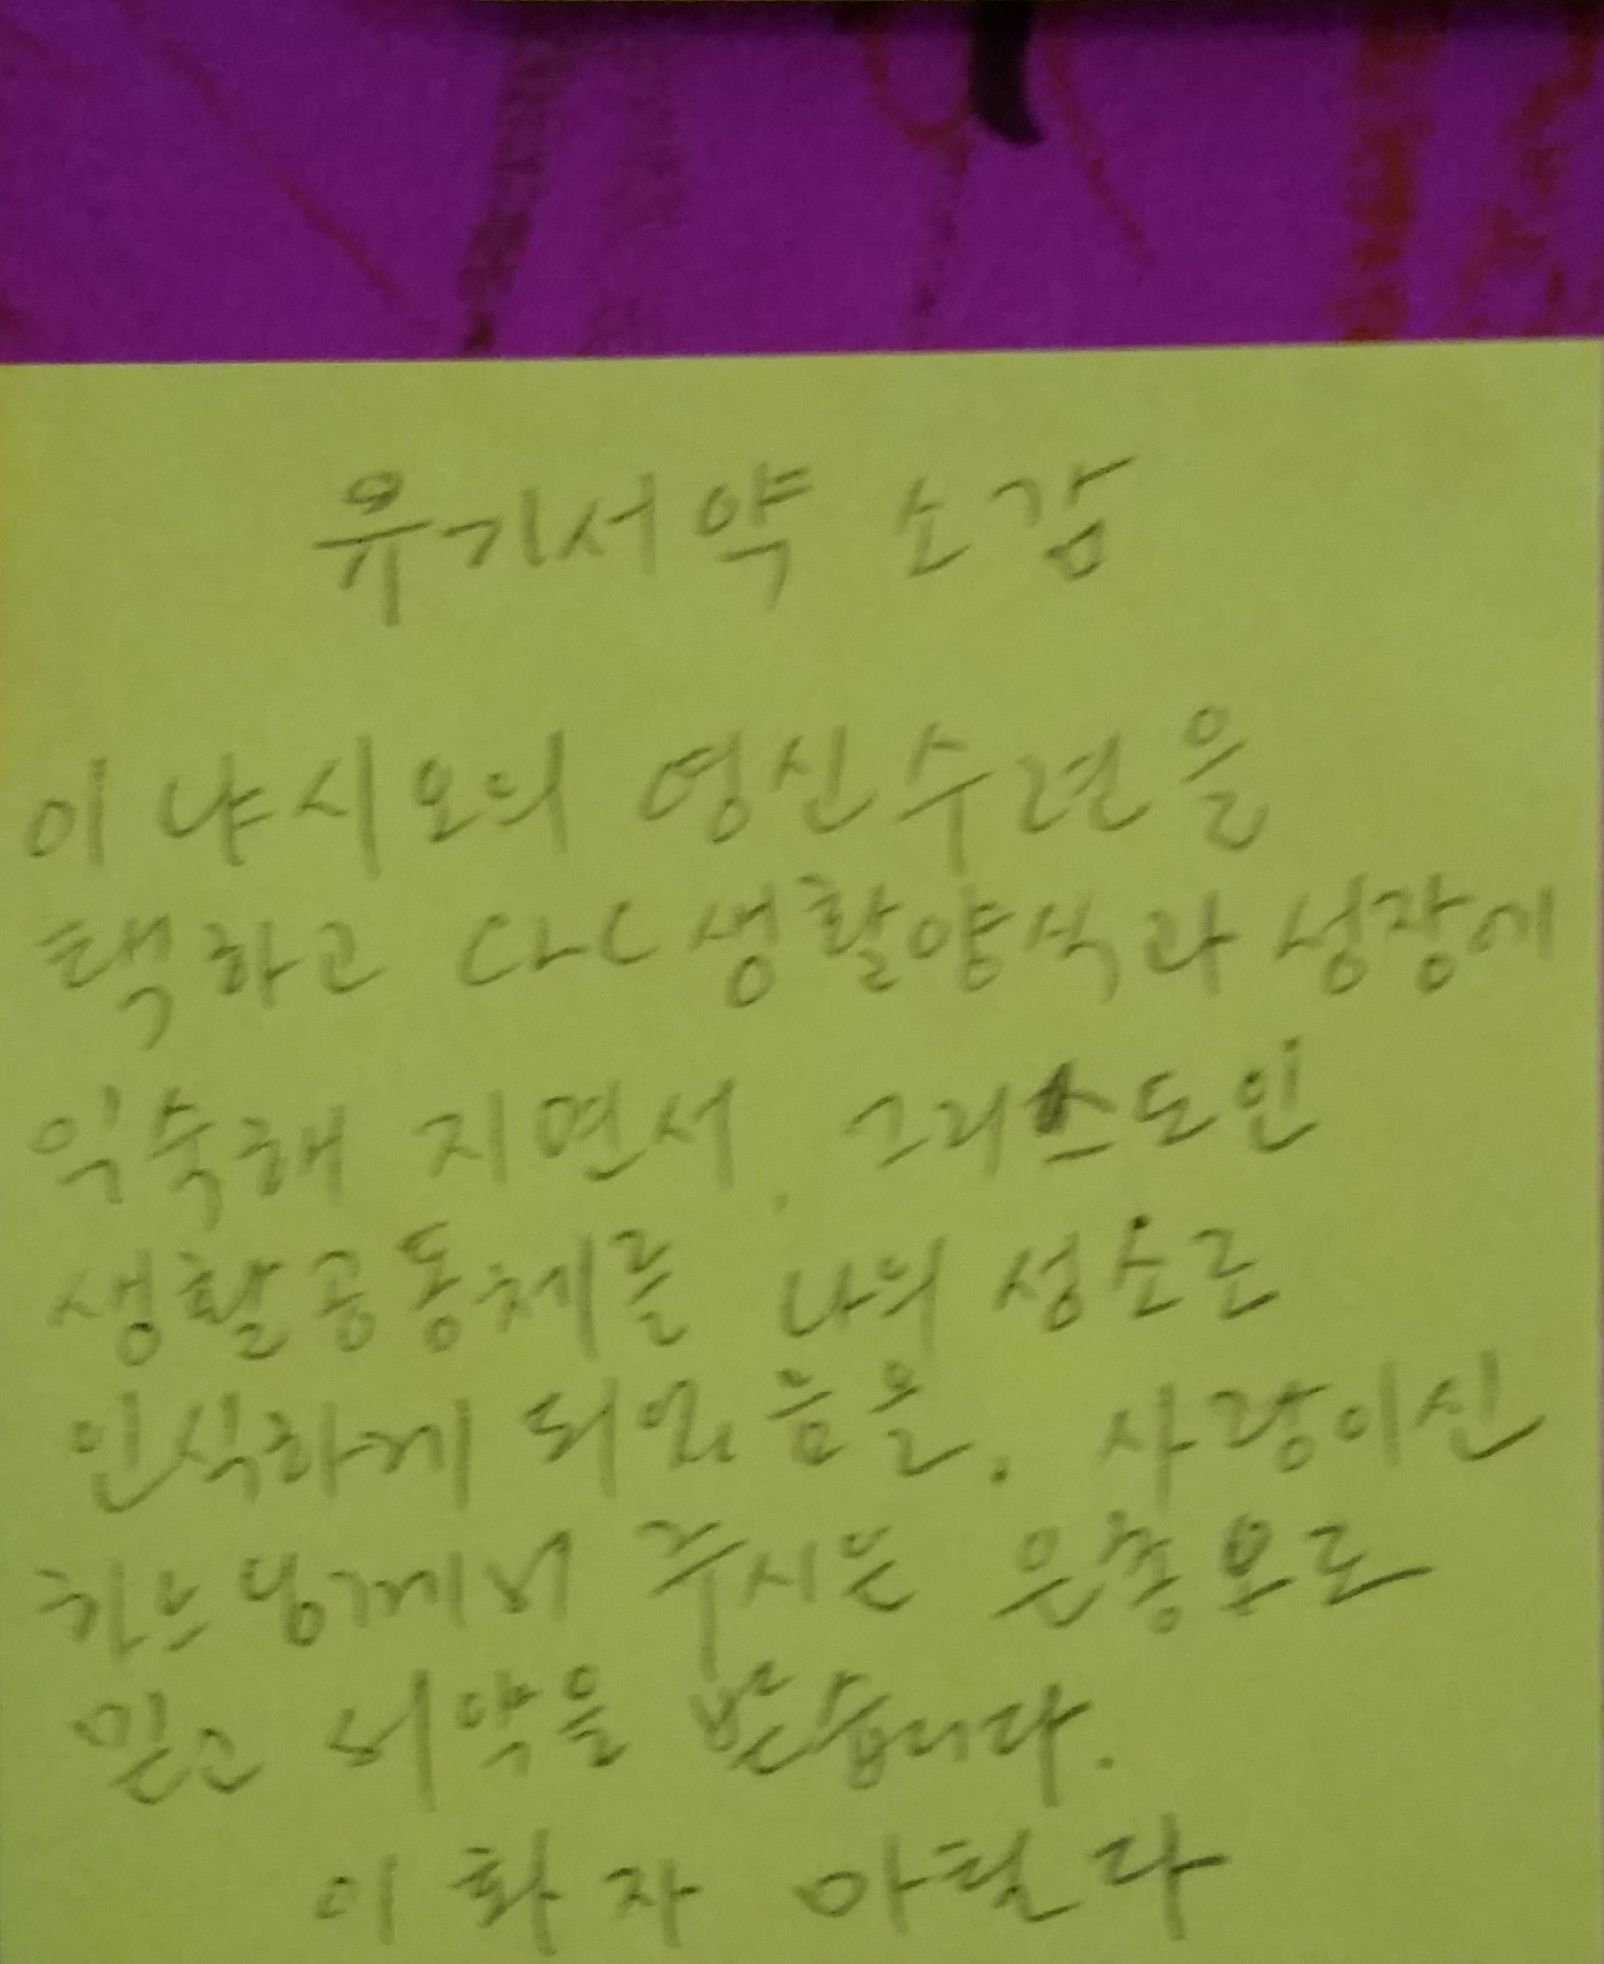 유기서약 소감
이냐시오의 영신수련을
택하고 CLC생활양식과 성장에
익숙해 지면서, 그리스도인
생활공동체를 나의 성소로
인식하게 되었음을. 사랑이신
하느님께서 주시는 은총으로
믿고 서약을 받습니다.
이화자 마틸다